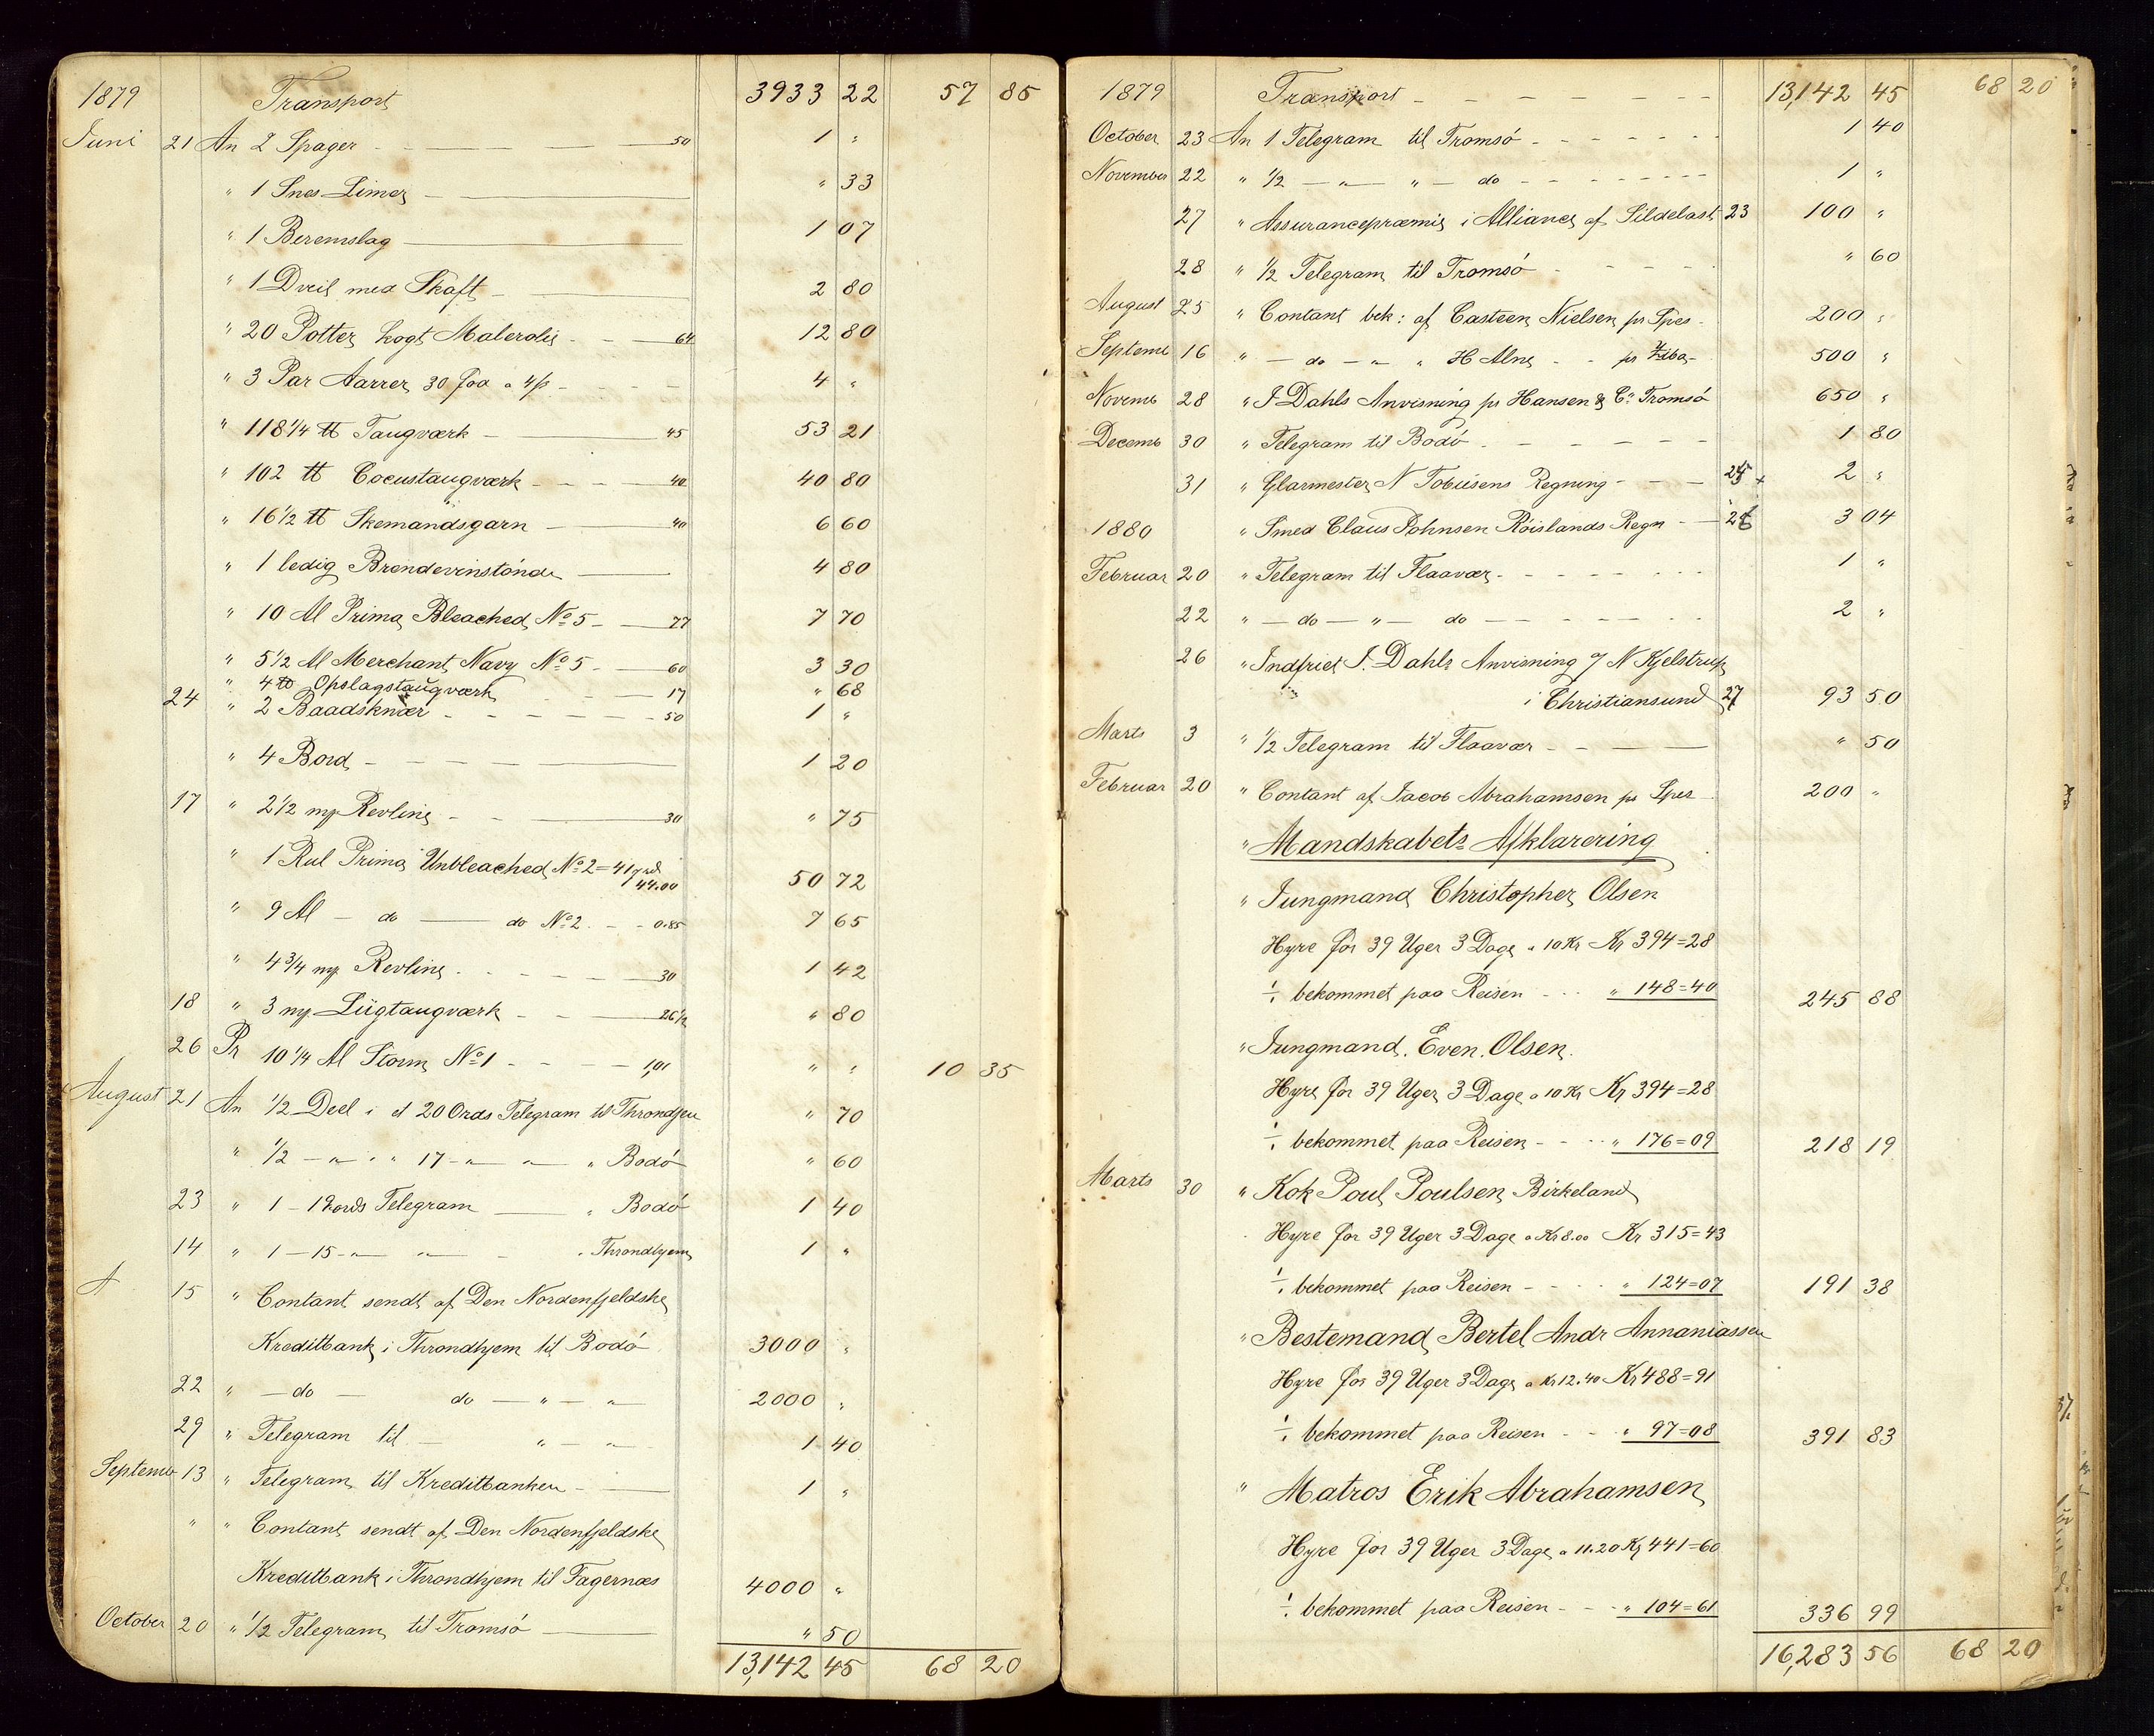 1879 Transport 3933 22 57 85
Juni 21 An 2 Spager 50 1 "
" 1 Snes Limer " 33
" 1 Beremslag 1 07
" 1 Dveil med Skaft 2 80
" 20 Potter kogt Malerolie 64 12 80
" 3 Par Aarrer 30 fod a 4/s 4 "
" 118 1/4 ℔ Taugværk 45 53 21
" 102 ℔ Cocustaugværk 40 40 80
" 16 1/2 ℔ Skemandsgarn 40 6 60
" 1 ledig Brendevinstönde 4 80
" 10 Al Prima Bleached No 5 77 7 70
" 5 1/2 Al Merchant Navy No 5 60 3 30
" 4 ℔ Opslagstaugværk 17 " 68
24 " 2 Baadsknær 50 1 "
" 4 Bord 1 20
17 " 2 1/2 mp Revline 30 " 75
" 1 Rul Prima Unbleached No 2 = 41 yrd
44.00 50 72
" 9 Al do do No 2 0.85 7 65
" 4 3/4 mp Revline 30 1 42
18 " 3 mp Liigtaugværk 26 1/2 " 80
26 Pr 10 1/4 Al Storm No 1 1,01 " " 10 35
August 21 An 1/2 Deel i et 20 Ords Telegram til Throndhjem " 70
" 1/2 - " - " 17 - " - " - " Bodö " 60
23 " 1 - 19 ords Telegram " Bodö 1 40
14 " 1 - 15 - " - " - " Throndhjem 1 "
A 15 " Contant sendt af Den Nordenfjeldske
Kreditbank i Throndhjem til Bodö 3000 "
22 " - do - do - " - " 2000 "
29 " Telegram til - " - " 1 40
Septemb 13 " Telegram til Kreditbanken 1 "
" " Contant sendt af Den Nordenfjeldske
Kreditbank i Throndhjem til Fagernæs 4000 "
October 20 " 1/2 Telegram til Tromsö " 50
13,142 45 68 20
1879 Transport 13,142 45 68 20
October 23 An 1 Telegram til Tromsö 1 40
November 22 " 1/2 - " - " - do 1 "
27 " Assurancepræmie i Alliance af Sildelast 23 100 "
28 " 1/2 Telegram til Tromsö " 60
August 25 " Contant bek: af Casteen Nielsen pr Spes 200 "
Septemb 16 " - do - " - " H Alne pr Ziba 500 "
Novemb 28 " J Dahls Anvisning pr Hansen & Co Tromsö 650 "
Decemb 30 " Telegram til Bodö 1 80
31 " Glarmester N Tobiisens Regning 25 + 2 "
1880 " Smed Claus Johnsen Röislands Regn 26 3 04
Februar 20 " Telegram til Flaavær 1 "
22 " - do - " - do 2 "
26 " Indfriet J. Dahls Anvisning % N Kjelstrup
i Christiansund 27 93 50
Marts 3 " 1/2 Telegram til Flaavær " 50
Februar 20 " Contant af Jacob Abrahamsen pr Spes 200 "
" Mandskabets Afklarering
" Jungmand Christopher Olsen
Hyre for 39 Uger 3 Dage a 10 Kr Kr 394=28
÷ bekommet paa Reisen " 148=40 245 88
" Jungmand. Even. Olsen.
Hyre for 39 Uger 3 Dage a 10 Kr Kr 394=28
÷ bekommet paa Reisen " 176=09 218 19
Marts 30 " Kok Poul Poulsen Birkeland
Hyre for 39 Uger 3 Dage a Kr 8.00 Kr 315=43
÷ bekommet paa Reisen " 124=07 191 38
" Bestemand Bertel Andr Annaniassen
Hyre for 39 Uger 3 Dage a Kr 12.40 Kr 488=91
÷ bekommet paa Reisen " 97=08 391 83
" Matros Erik Abrahamsen
Hyre for 39 Uger 3 Dage a 11.20 Kr 441=60
÷ bekommet paa Reisen " 104=61 336 99
16,283 56 68 20